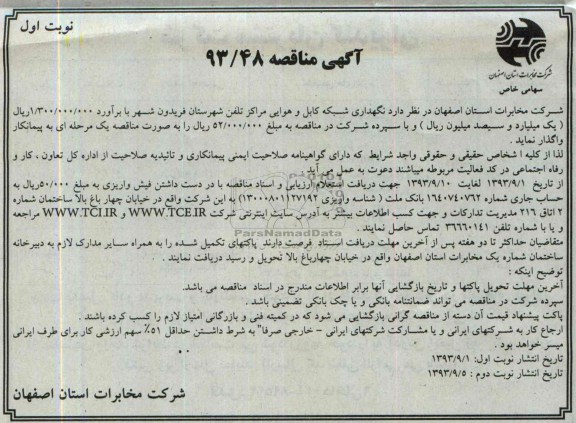 نوبت اول
شرکت مخابرات استان اصفهان
سهامی خاص
آگهی مناقصه ۹۳/۴۸
شرکت مخابرات استان اصفهان در نظر دارد نگهداری شبکه کابل و هوایی مراکز تلفن شهرستان فریدون شهر با برآورد ۱/۳۰۰/۰۰۰/۰۰۰ریال
( یک میلیارد و سیصد میلیون ریال ) و با سپرده شرکت در مناقصه به مبلغ ۵۲/۰۰۰/۰۰۰ ریال را به صورت مناقصه یک مرحله ای به پیمانکار
واگذار نماید .
لذا از کلیه ا شخاص حقیقی و حقوقی واجد شرایط که دارای گواهینامه صلاحیت ایمنی پیمانکاری و تائیدیه صلاحیت از اداره کل تعاون ، کار و
رفاه اجتماعی در کد فعالیت مربوطه میباشند دعوت به عمل می آید .
از تاریخ ۱۳۹۳/۹/۱ لغایت ۱۳۹۳/۹/۱۰ جهت دریافت استعلام ارزیابی و اسناد مناقصه با در دست داشتن فیش واریزی به مبلغ ۵۰/۰۰۰ریال به
حساب جاری شماره ۱۶۴۰۷۴۰۷۶۲ بانک ملت ( شناسه واریزی ۱۳۰۰۰۸۰۱۱۳۷۱۹۲) به این شرکت واقع در خیابان چهار باغ بالا ساختمان شماره
۲ اتاق ۲۱۶ مدیریت تدارکات و جهت کسب اطلاعات بیشتر به آدرس سایت اینترنتی شرکت WWW.TCE.IR و WWW.TCI.IR مراجعه
و یا با شماره تلفن ۳۶۶۶۰۱۴۱ تماس حاصل نمایند .
متقاضیان حداکثر تا دو هفته پس از آخرین مهلت دریافت اسناد فرصت دارند پاکتهای تکمیل شده را به همراه سایر مدارک لازم به دبیرخانه
ساختمان شماره یک مخابرات استان اصفهان واقع در خیابان چهارباغ بالا تحویل و رسید دریافت نمایند .
توضیح اینکه :
آخرین مهلت تحویل پاکتها و تاریخ بازگشایی آنها برابر اطلاعات مندرج در اسناد مناقصه می باشد.
سپرده شرکت در مناقصه می تواند ضمانتنامه بانکی و یا چک بانکی تضمینی باشد .
پاکت پیشنهاد قیمت آن دسته از مناقصه گرانی بازگشایی می شود که در کمیته فنی و بازرگانی امتیاز لازم را کسب کرده باشند .
ارجاع کار به شرکتهای ایرانی و یا مشارکت شرکتهای ایرانی - خارجی صرفا" به شرط داشتن حداقل ۵۱٪ سهم ارزشی کار برای طرف ایرانی
میسر خواهد بود .
تاریخ انتشار نوبت اول: ۱۳۹۳/۹/۱
تاریخ انتشار نوبت دوم : ۱۳۹۳/۹/۵
شرکت مخابرات استان اصفهان
ParsNamadData